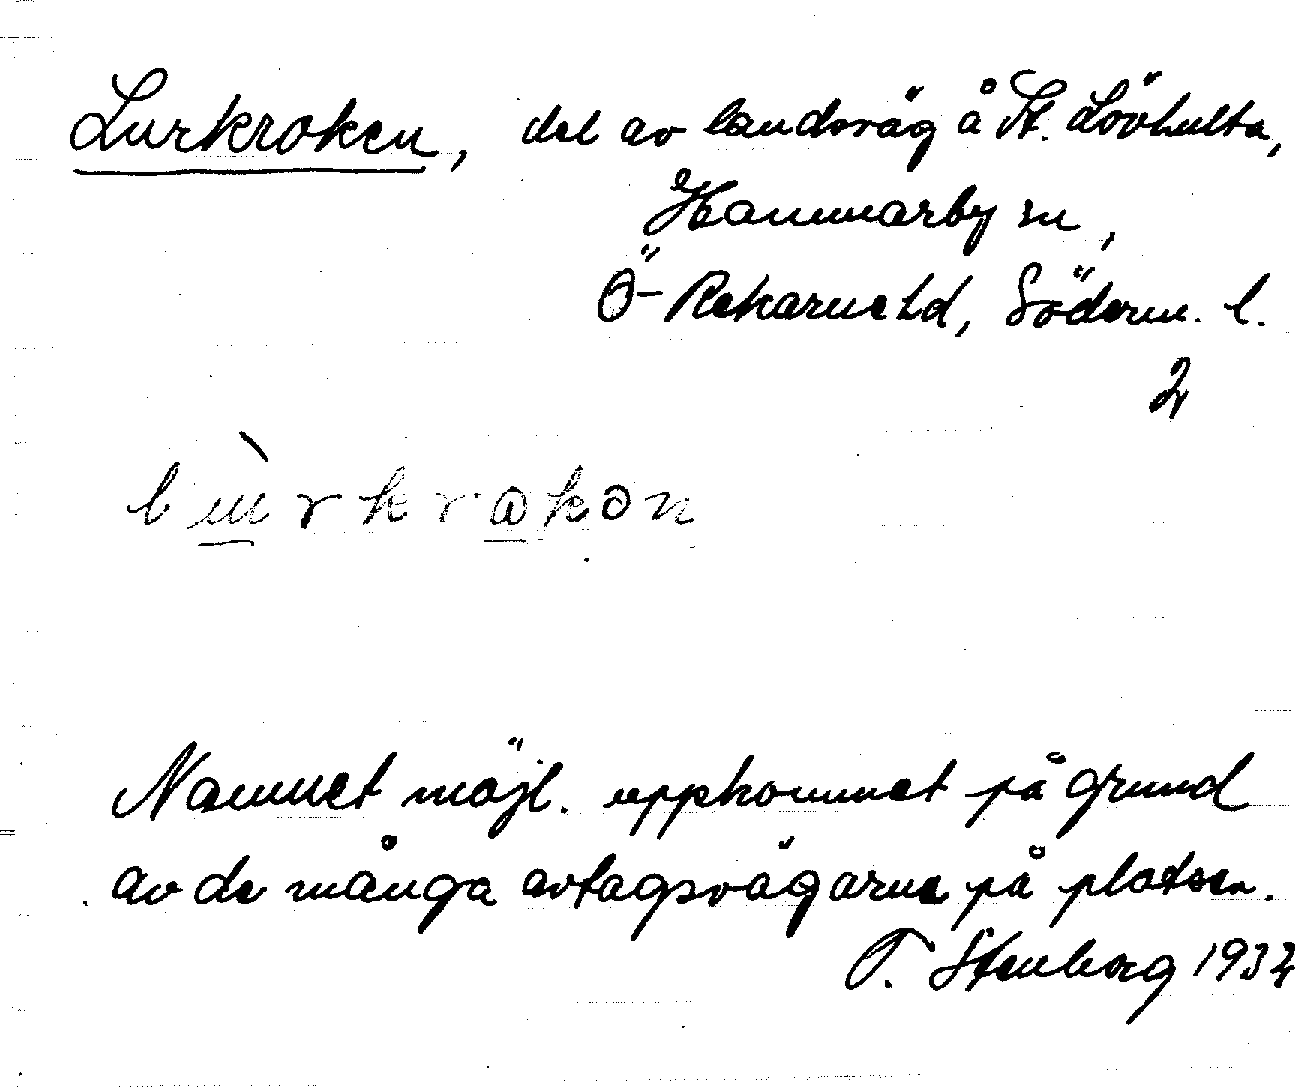 Lurkroken, del av landsväg å St. Lövhulta,
Hammarby sn,
Ö-Rekarne hd, Söderm. l.
2
lù̲rkra̲kən
Namnet möjl. uppkommet på grund
av de många avtagsvägarne på platsen.
T. Stenborg 1934